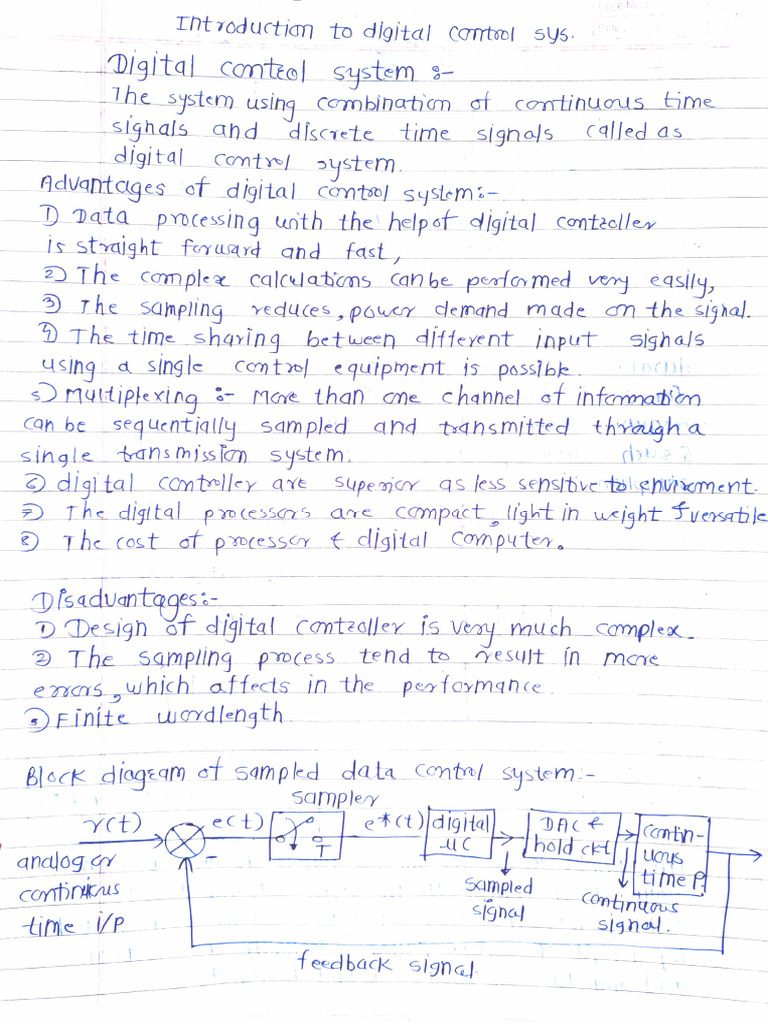 Introduction to digital control sys.
Digital control system :-
The system using combination of continuous time
signals and discrete time signals called as
digital control system.
Advantages of digital control system:-
1) Data processing with the help of digital controller
is straight forward and fast,
2) The complex calculations can be performed very easily,
3) The sampling reduces, power demand made on the signal.
4) The time sharing between different input signals
using a single control equipment is possible.
5) Multiplexing :- More than one channel of information
can be sequentially sampled and transmitted through a
single transmission system.
6) digital controller are superior as less sensitive to enviroment.
7) The digital processors are compact, light in weight & versatile
8) The cost of processor & digital computer.
Disadvantages:-
1) Design of digital controller is very much complex.
2) The sampling process tend to result in more
errors, which affects in the performance
3) Finite wordlength
Block diagram of sampled data control system:-
sampler
r(t) e(t) e*(t) digital DAC & contin-
- T μC hold ckt uous
analog or time P.
continuous sampled continuous
time i/p signal signal.
feedback signal